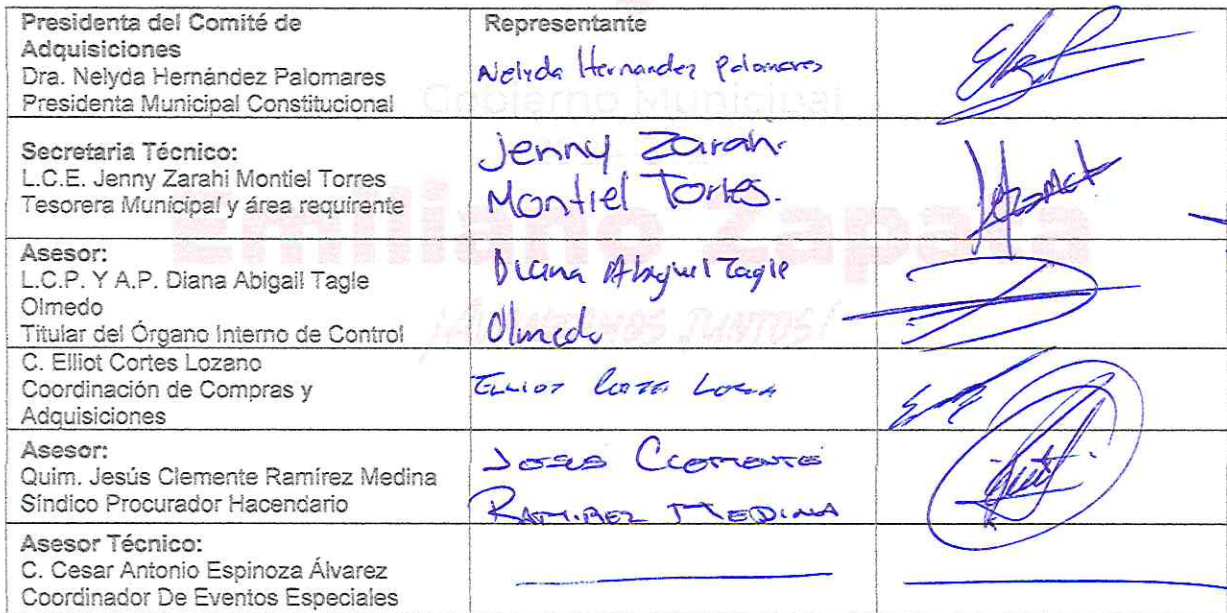 Presidenta del Comité de
Adquisiciones
Dra. Nelyda Hernández Palomares
Presidenta Municipal Constitucional
Representante
Nelyda Hernandez Palomares
Gobierno Municipal
Secretaria Técnico:
L.C.E. Jenny Zarahi Montiel Torres
Tesorera Municipal y área requirente
Jenny Zarahi
Montiel Torres.
Emiliano Zapata
Asesor:
L.C.P. Y A.P. Diana Abigail Tagle
Olmedo
Titular del Órgano Interno de Control
Diana Abigail Tagle
Olmedo
JUNTOS!
C. Elliot Cortes Lozano
Coordinación de Compras y
Adquisiciones
Elliot
Asesor:
Quim. Jesús Clemente Ramírez Medina
Síndico Procurador Hacendario
Jesus Clemente
Ramirez Medina
Asesor Técnico:
C. Cesar Antonio Espinoza Álvarez
Coordinador De Eventos Especiales